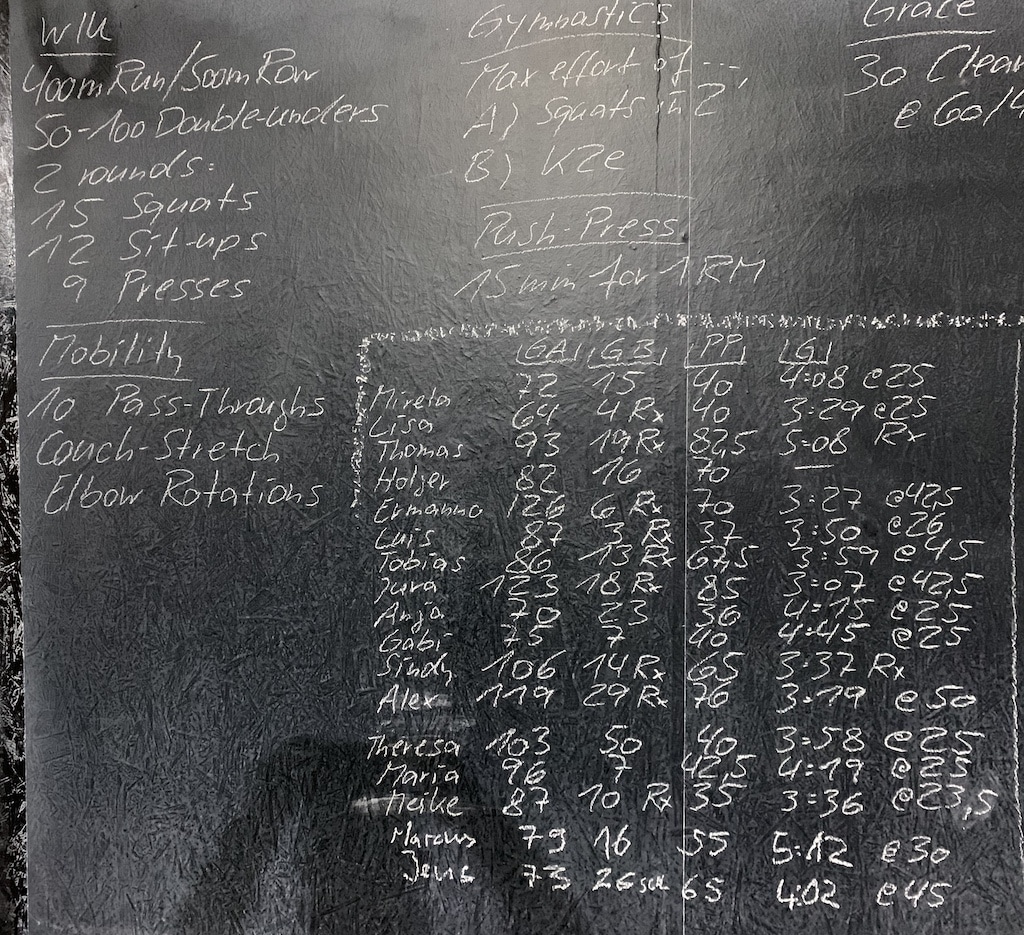 W/U
400m Run/500m Row
50-100 Double-unders
2 rounds:
15 Squats
12 Sit-ups
9 Presses
Mobility
10 Pass-Throughs
Couch-Stretch
Elbow Rotations
Gymnastics
Max effort of ...
A) Squats in 2'
B) K2e
Push-Press
15 min for 1RM
Grace
30 Clean
@ 60/4
GA GB PP G
Mireta 72 15 40 4:08 @25
Lisa 64 4 Rx 40 3:29 @25
Thomas 93 19 Rx 82,5 5:08 Rx
Holger 82 16 70 —
Ermanno 126 6 Rx 70 3:27 @42,5
Luis 87 3 Rx 37 3:50 @26
Tobias 86 13 Rx 67,5 3:59 @45
Jura 123 18 Rx 85 3:07 @42,5
Anja 70 23 36 4:15 @25
Gabi 75 7 40 4:45 @25
Sindy 106 14 Rx 65 3:37 Rx
Alex 119 29 Rx 76 3:19 @50
Theresa 103 50 40 3:58 @25
Maria 96 7 42,5 4:19 @25
Heike 87 10 Rx 35 3:36 @23,5
Marcus 79 16 55 5:12 @30
Jens 73 26 65 4:02 @45